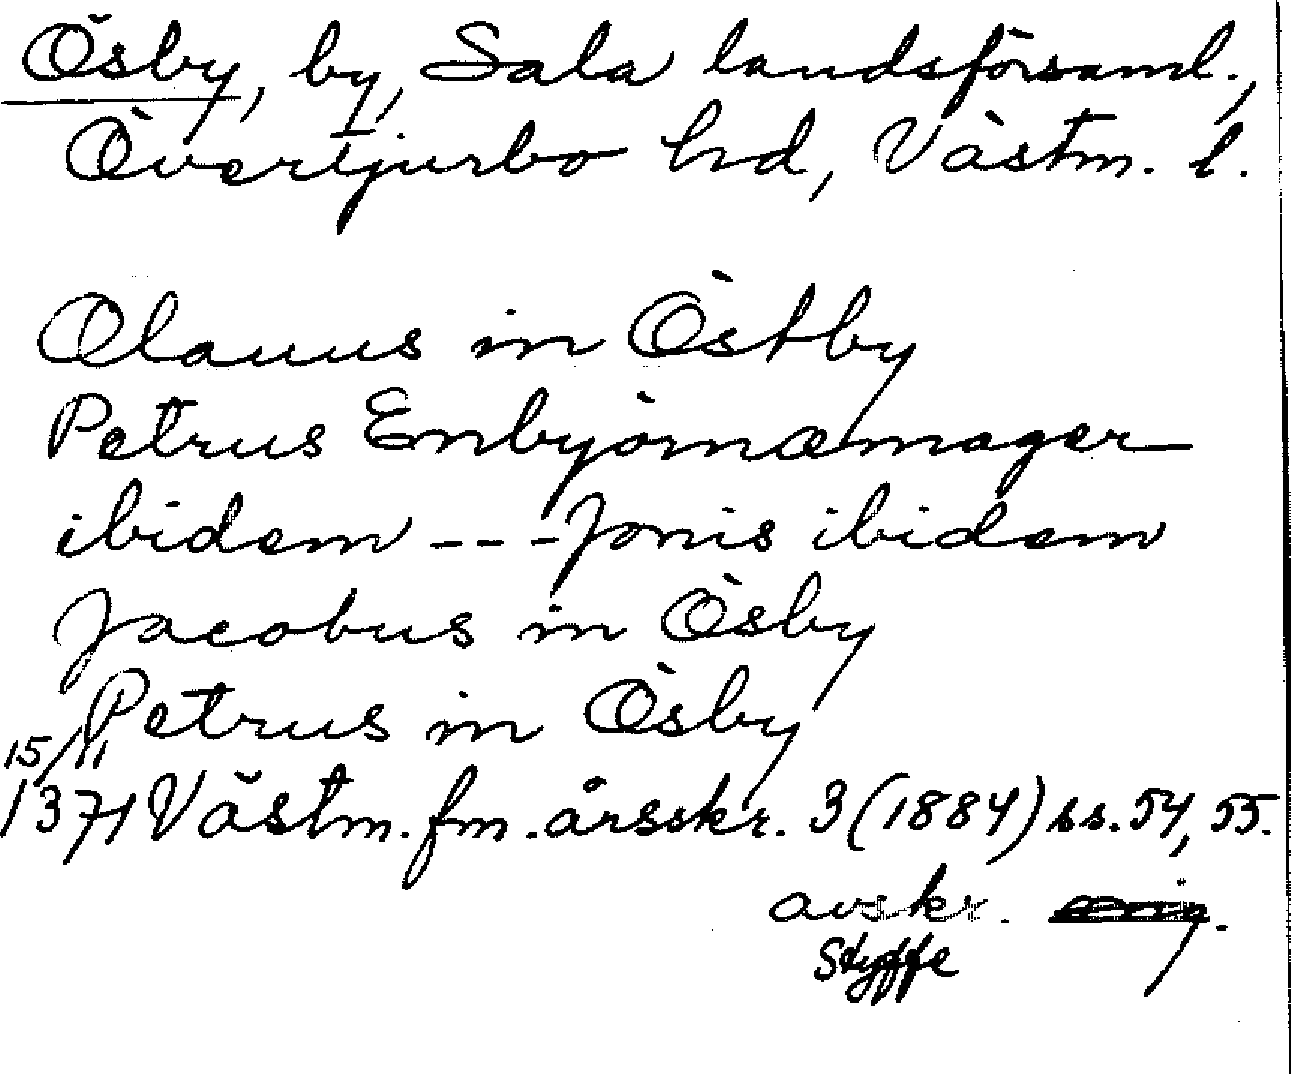 Ösby, by, Sala landsförsaml.,
Övertjurbo hd, Västm. l.
Olauus in Östby
Petrus Enbyörnæmager
ibidem --- Jonis ibidem
Jacobus in Ösby
Petrus in Ösby
15/11
1371 Västm. fm. årsskr. 3 (1884) ss. 54, 55.
avskr.
Styffe